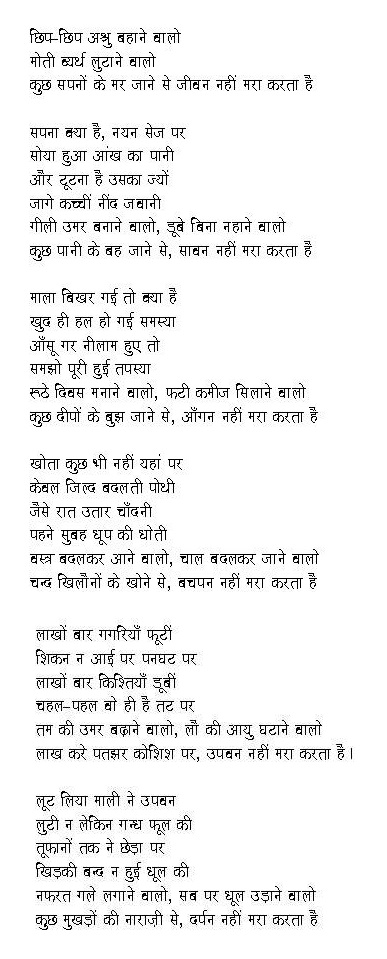 छिप-छिप अश्रु बहाने वालो
मोती व्यर्थ लुटाने वालो
कुछ सपनों के मर जाने से जीवन नहीं मरा करता है
सपना क्या है, नयन सेज पर
सोया हुआ आंख का पानी
और टूटना है उसका ज्यों
जागे कच्चीं नींद जवानी
गीली उमर बनाने वालो, डूबे बिना नहाने वालो
कुछ पानी के बह जाने से, सावन नहीं मरा करता है
माला बिखर गई तो क्या है
खुद ही हल हो गई समस्या
आँसू गर नीलाम हुए तो
समझो पूरी हुई तपस्या
रूठे दिवस मनाने वालो, फटी कमीज सिलाने वालो
कुछ दीपों के बुझ जाने से, आँगन नहीं मरा करता है
खोता कुछ भी नहीं यहां पर
केवल जिल्द बदलती पोथी
जैसे रात उतार चाँदनी
पहने सुबह धूप की धोती
वस्त्र बदलकर आने वालो, चाल बदलकर जाने वालो
चन्द खिलौनों के खोने से, बचपन नहीं मरा करता है
लाखों बार गगरियाँ फूटीं
शिकन न आई पर पनघट पर
लाखों बार किश्तियाँ डूबीं
चहल-पहल वो ही है तट पर
तम की उमर बढ़ाने वालो, लौ की आयु घटाने वालो
लाख करे पतझर कोशिश पर, उपवन नहीं मरा करता है।
लूट लिया माली ने उपवन
लुटी न लेकिन गन्ध फूल की
तूफानों तक ने छेड़ा पर
खिड़की बन्द न हुई धूल की
नफरत गले लगाने वालो, सब पर धूल उड़ाने वालो
कुछ मुखड़ों की नाराज़ी से, दर्पन नहीं मरा करता है